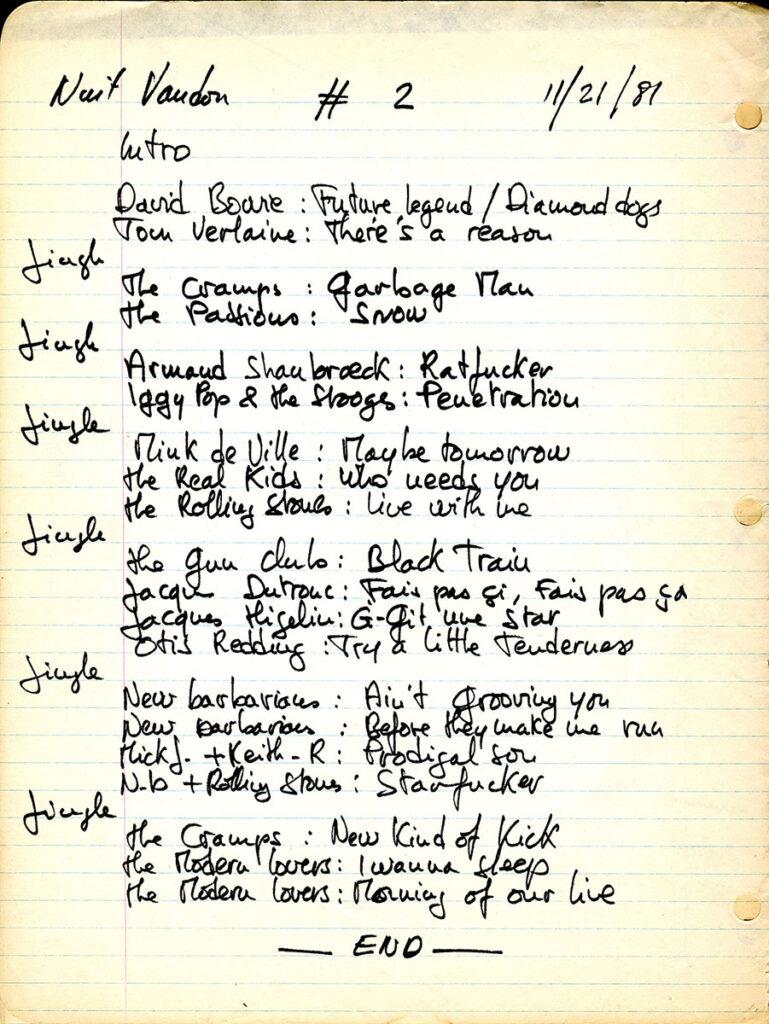 Nuit Vaudou # 2 11/21/81
Intro
David Bowie : Future legend / Diamond dogs
Tom Verlaine : There's a reason
Jingle
The Cramps : Garbage Man
the Passions : Snow
Jingle
Armand Shaubroeck : Ratfucker
Iggy Pop & the Stooges : Penetration
Jingle
Mink de Ville : Maybe tomorrow
the Real Kids : Who needs you
the Rolling Stones : Live with me
Jingle
the Gun Club : Black Train
Jacques Dutronc : Fais pas çi, Fais pas ça
Jacques Higelin : Ci-Gît une star
Otis Redding : Try a little Tenderness
Jingle
New barbarians : Ain't grooving you
New barbarians : Before they make me run
Mick J. + Keith - R : Prodigal son
N-b + Rolling Stones : Starfucker
Jingle
the Cramps : New Kind of Kick
the Modern lovers : I wanna sleep
the Modern lovers : Morning of our live
— END —